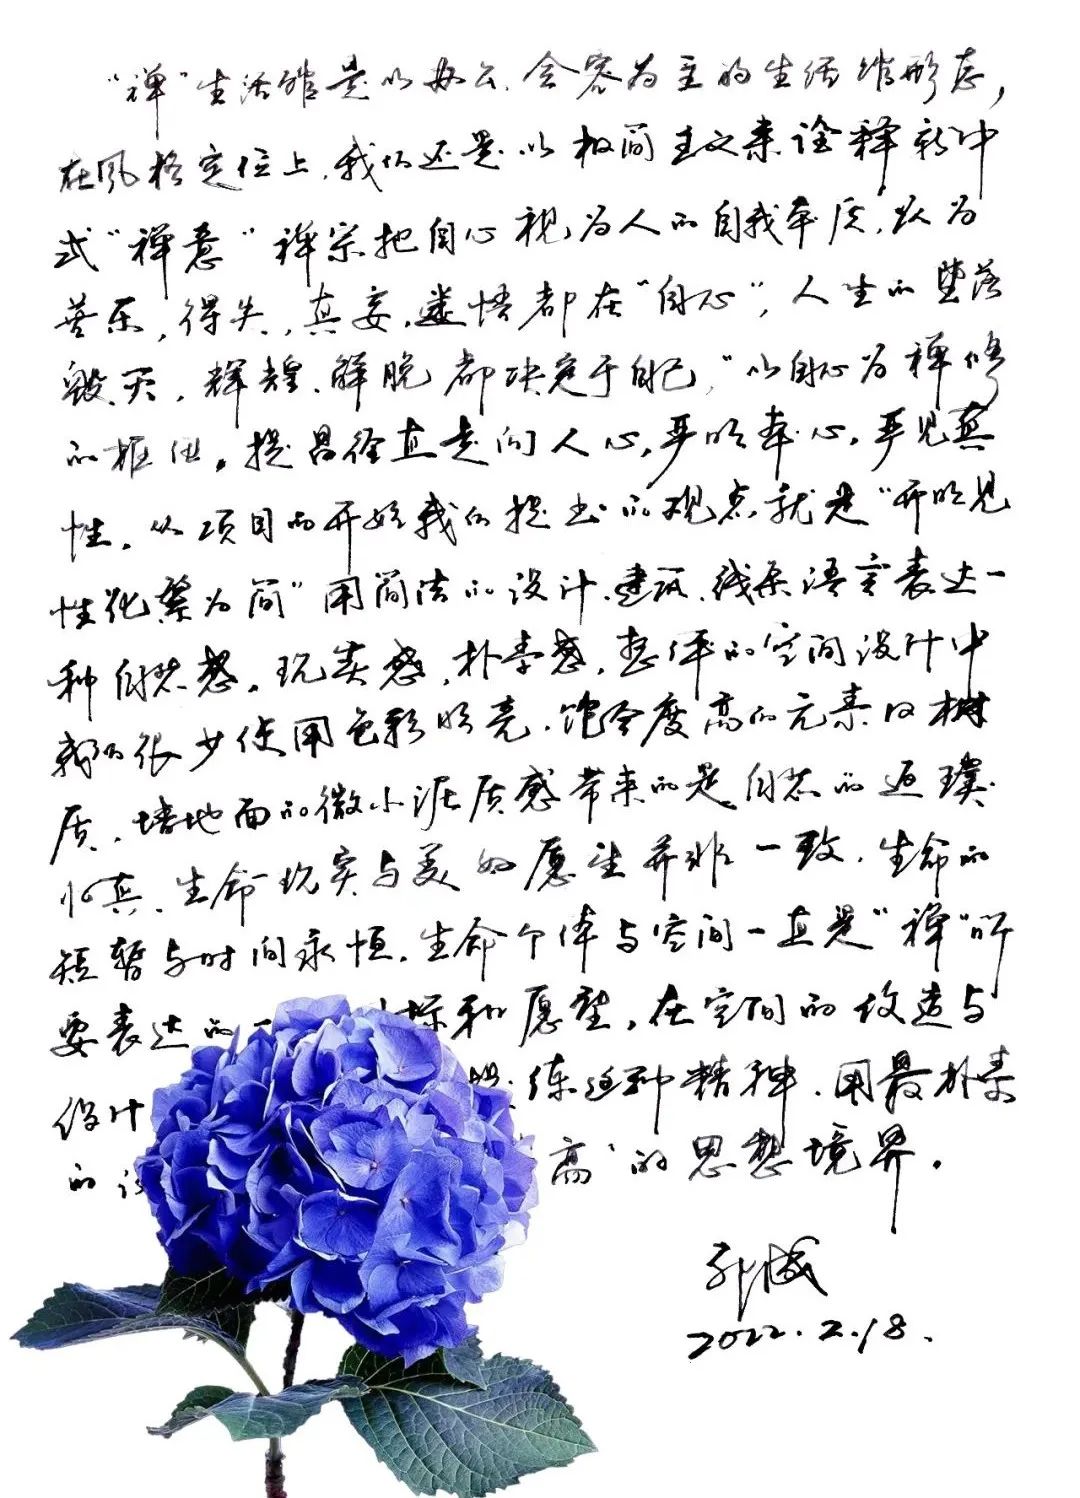 “禅”生活馆是以办公、会客为主的生活馆形态，
在风格定位上，我们还是以极简主义来诠释新中
式“禅意”禅宗把自心视为人的自我本质，认为
苦乐，得失，真妄，迷悟都在“自心”，人生的堕落
毁灭，辉煌、解脱都决定于自己，“以自心为禅修
的枢纽。提昌径直走向人心，严明本心，严见真
性。从项目的开始我们提出的观点就是“开明见
性化繁为简”用简洁的设计、建筑、线条语言表达一
种自然感，现实感，朴素感，整体的空间设计中
我们很少使用色彩明亮、饱合度高的元素及树
质、墙地面的微水泥质感带来的是自然的返璞
归真、生命现实与美好愿望并非一致，生命的
短暂与时间永恒，生命个体与空间一直是“禅”所
要表达的 和愿望，在空间的改造与
设计 练这种精神，用最朴素
的 高的思想境界。
2022.2.18.